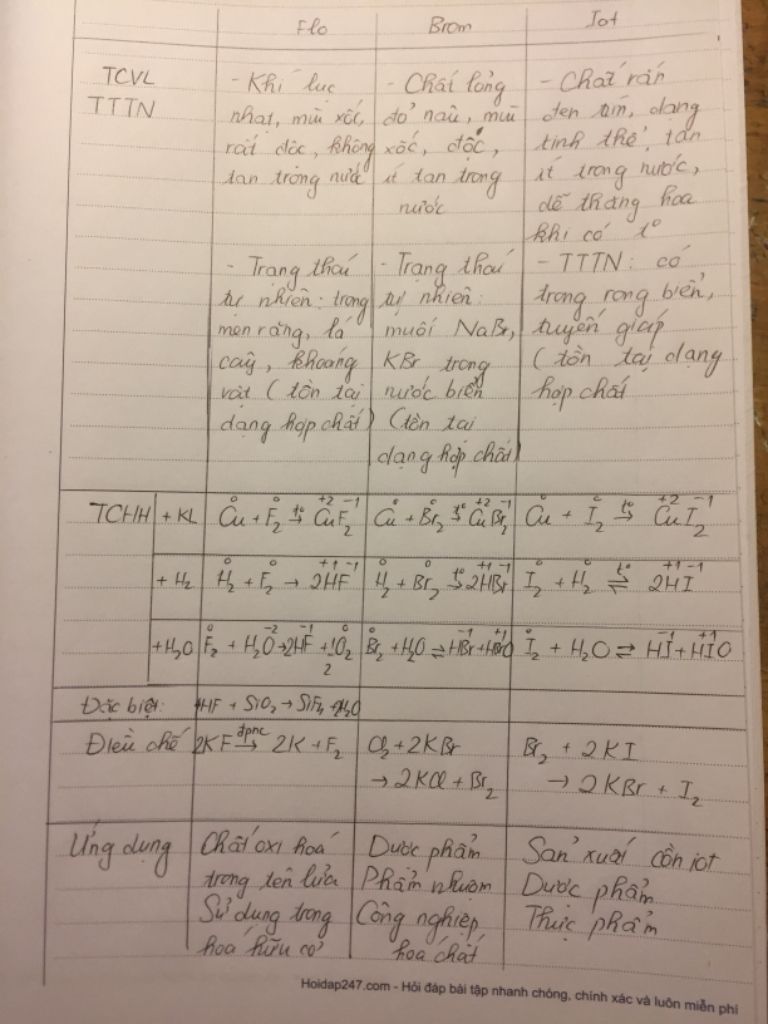 Flo Brom Iot
TCVL
TTTN
- Khí lục
nhạt, mùi xốc,
rất độc, không
tan trong nước
- Chất lỏng
đỏ nâu, mùi
xốc, độc,
ít tan trong
nước
- Chất rắn
đen tím, dạng
tinh thể, tan
ít trong nước,
dễ thăng hoa
khi có t°
- Trạng thái
tự nhiên: trong
men răng, lá
cây, khoáng
vật (tồn tại
dạng hợp chất)
- Trạng thái
tự nhiên:
muối NaBr,
KBr trong
nước biển
(tồn tại
dạng hợp chất)
- TTTN: có
trong rong biển,
tuyến giáp
(tồn tại dạng
hợp chất
TCHH + KL
Cu⁰ + F₂⁰ →(t°) Cu⁺²F₂⁻¹
Cu⁰ + Br₂⁰ →(t°) Cu⁺²Br₂⁻¹
Cu⁰ + I₂⁰ →(t°) Cu⁺²I₂⁻¹
+ H₂
H₂⁰ + F₂⁰ → 2H⁺¹F⁻¹
H₂⁰ + Br₂⁰ →(t°) 2H⁺¹Br⁻¹
I₂⁰ + H₂⁰ ⇌(t°) 2H⁺¹I⁻¹
+ H₂O
F₂⁰ + H₂O⁻² → 2HF⁻¹ + ½O₂⁰
Br₂⁰ + H₂O ⇌ HBr⁻¹ + HBr⁺¹O
I₂⁰ + H₂O ⇌ HI⁻¹ + HI⁺¹O
Đặc biệt: 4HF + SiO₂ → SiF₄ + 2H₂O
Điều chế
2KF →(đpnc) 2K + F₂
Cl₂ + 2KBr
→ 2KCl + Br₂
Br₂ + 2KI
→ 2KBr + I₂
Ứng dụng
Chất oxi hoá
trong tên lửa
Sử dụng trong
hoá hữu cơ
Dược phẩm
Phẩm nhuộm
Công nghiệp
hoá chất
Sản xuất cồn iot
Dược phẩm
Thực phẩm
Hoidap247.com - Hỏi đáp bài tập nhanh chóng, chính xác và luôn miễn phí